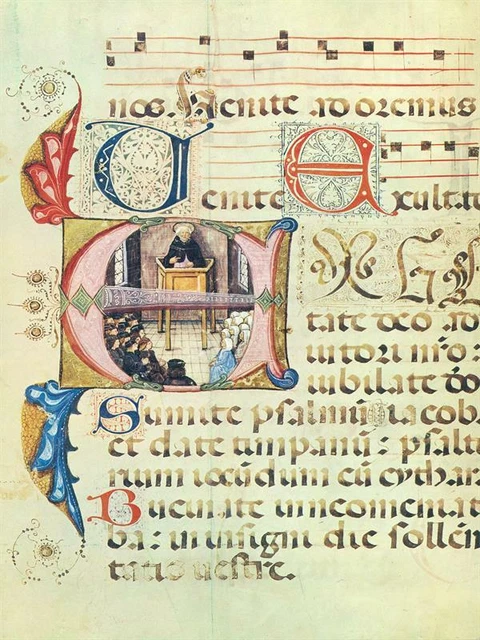 nos. Venite adoremus
Venite Exultat
E X
tate deo ad
iutori nr̃o:
iubilate do
Sumite psalmũ iacob
et date timpanũ: psalt
rium iocũdum cũ cythar
Bucinate in neomenia t
ba: in insigni die sollẽn
tatis uestre.